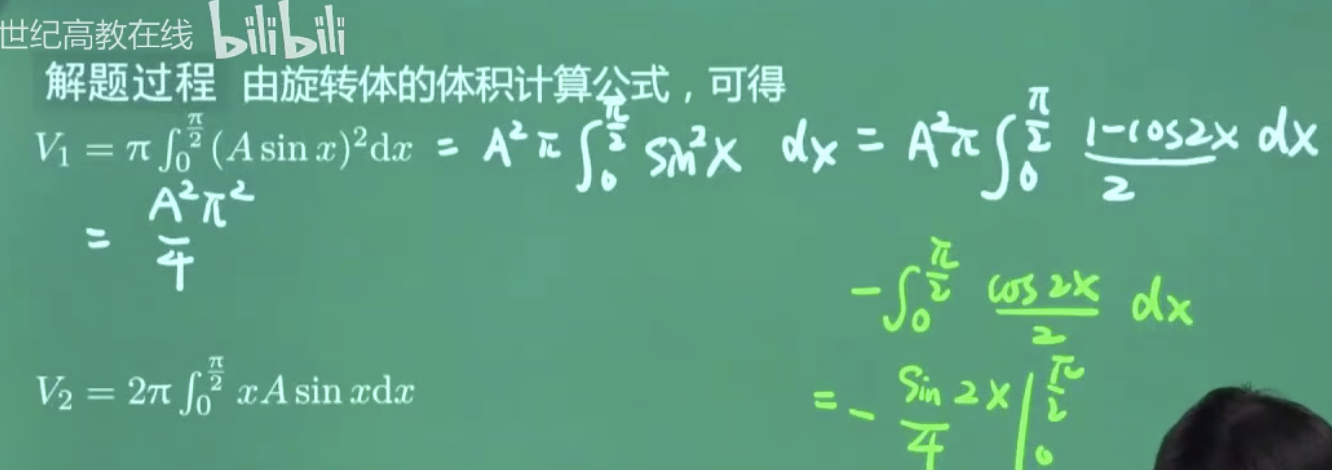 世纪高教在线 bilibili
解题过程 由旋转体的体积计算公式，可得
V₁ = π∫₀^{π/2} (A sin x)²dx = A²π∫₀^{π/2} sin²x dx = A²π∫₀^{π/2} (1-cos2x)/2 dx
= A²π²/4
-∫₀^{π/2} cos2x/2 dx
V₂ = 2π∫₀^{π/2} xA sin xdx
= - sin2x/4 |₀^{π/2}